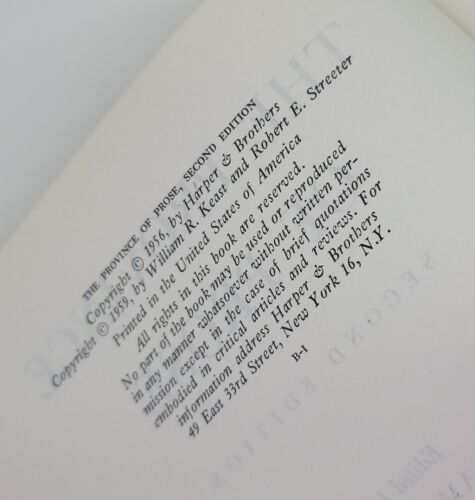 THE PROVINCE OF PROSE, SECOND EDITION
Copyright © 1956, by Harper & Brothers
Copyright © 1959, by William R. Keast and Robert E. Streeter
Printed in the United States of America
All rights in this book are reserved.
No part of the book may be used or reproduced
in any manner whatsoever without written per-
mission except in the case of brief quotations
embodied in critical articles and reviews. For
information address Harper & Brothers
49 East 33rd Street, New York 16, N.Y.
B-I
SECOND EDITION